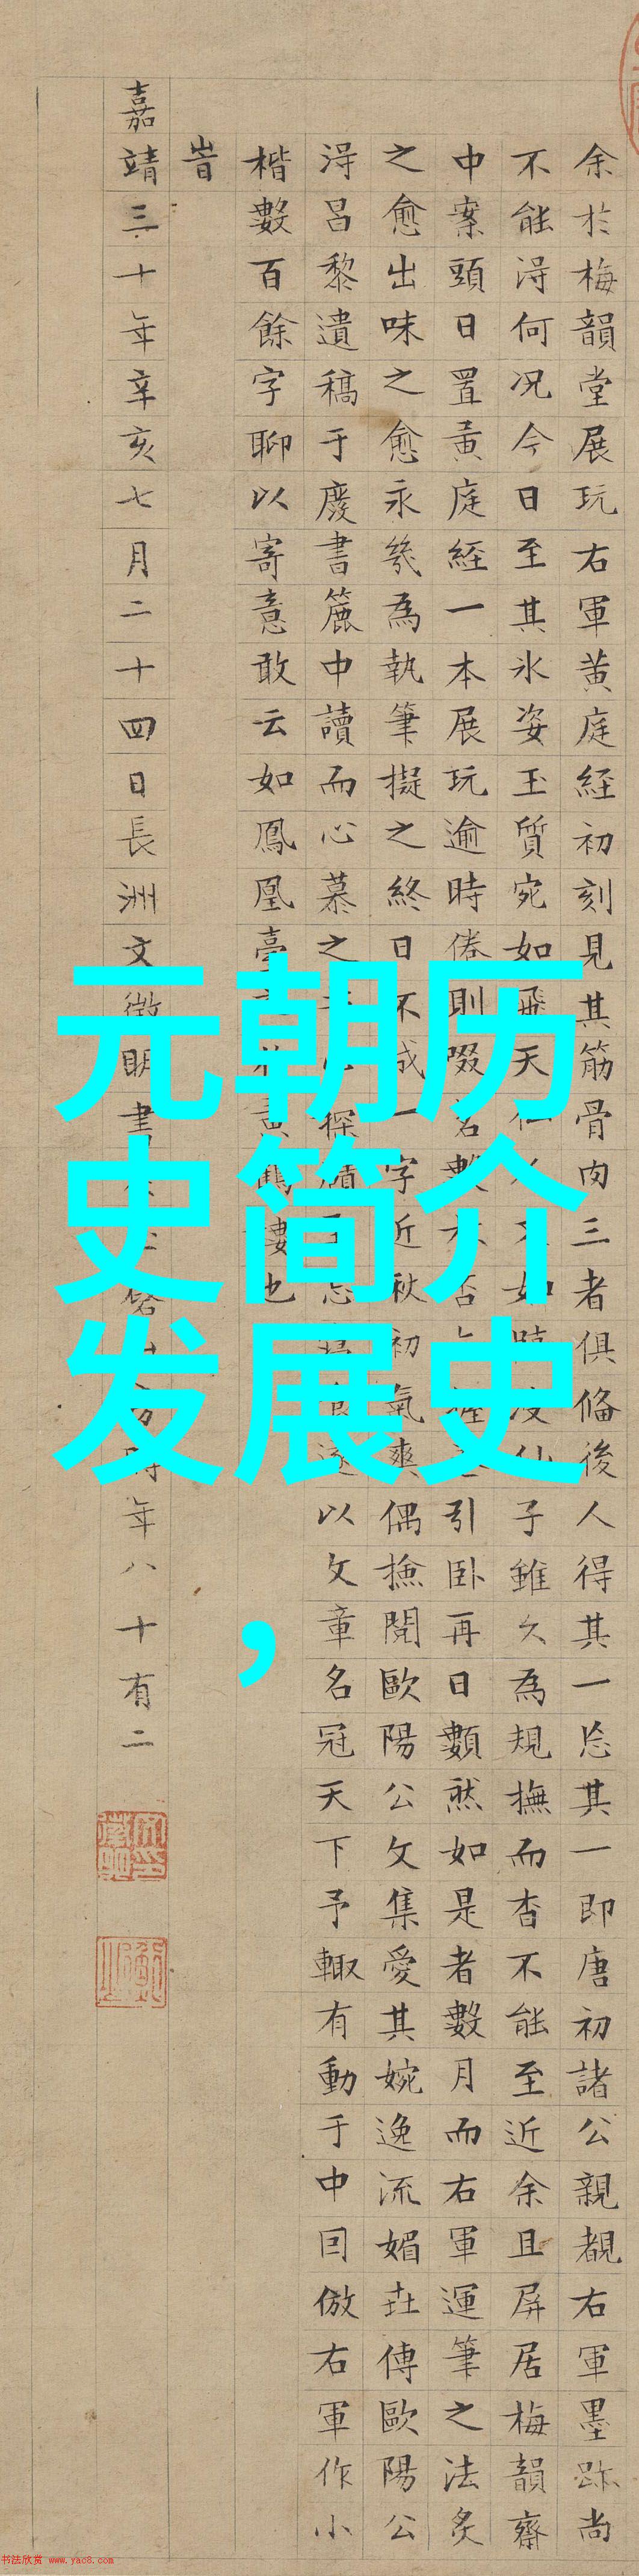 余於梅韻堂展玩右軍黃庭経初刻見其筋骨肉三者俱俻後人得其一忘其一即唐初諸公親覩右軍墨跡尚
不能淂何况今日至其氷姿玉質宛如飛天仙如凌仙子雖久為規撫而杳不能至近余且屏居梅韻齋
中案頭日置黃庭経一本展玩逾時倦則啜茗數否引卧再日數然如是者數月而右軍運筆之法炙
之愈出味之愈永為執筆擬之終日不成一字近秋初氣爽偶撿閱歐陽公文集愛其婉逸流媚世傳歐陽公
淂昌黎遺稿于廢書簏中讀而心慕之探賾忘食遂以文章名冠天下予輙有動于中回倣右軍作小
楷數百餘字聊以寄意敢云如鳳凰臺黃鶴樓也
旹
嘉靖三十年辛亥七月二十四日長洲文徴明書房時年八十有二
元朝历
史简介
发展史
，
书法欣赏 www.yac8.com